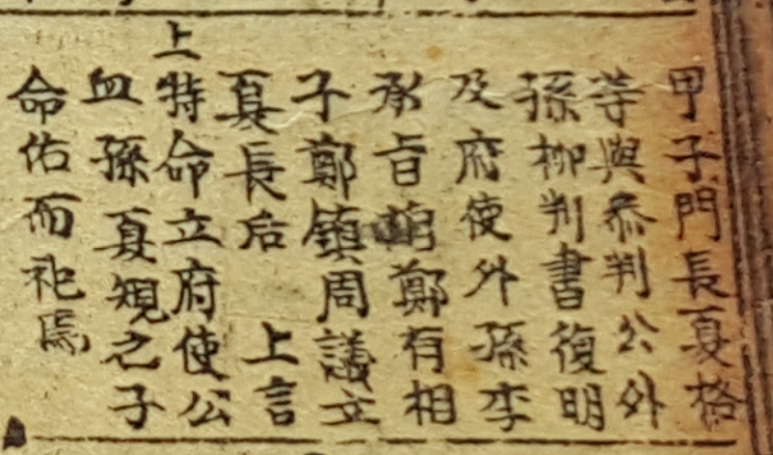 甲子門長夏格
等與叅判公外
孫柳判書復明
及府使外孫李
承旨 鄭有相
子鄭鎮周議立
夏長后 上言
上特命立府使公
血孫夏規之子
命佑而祀焉